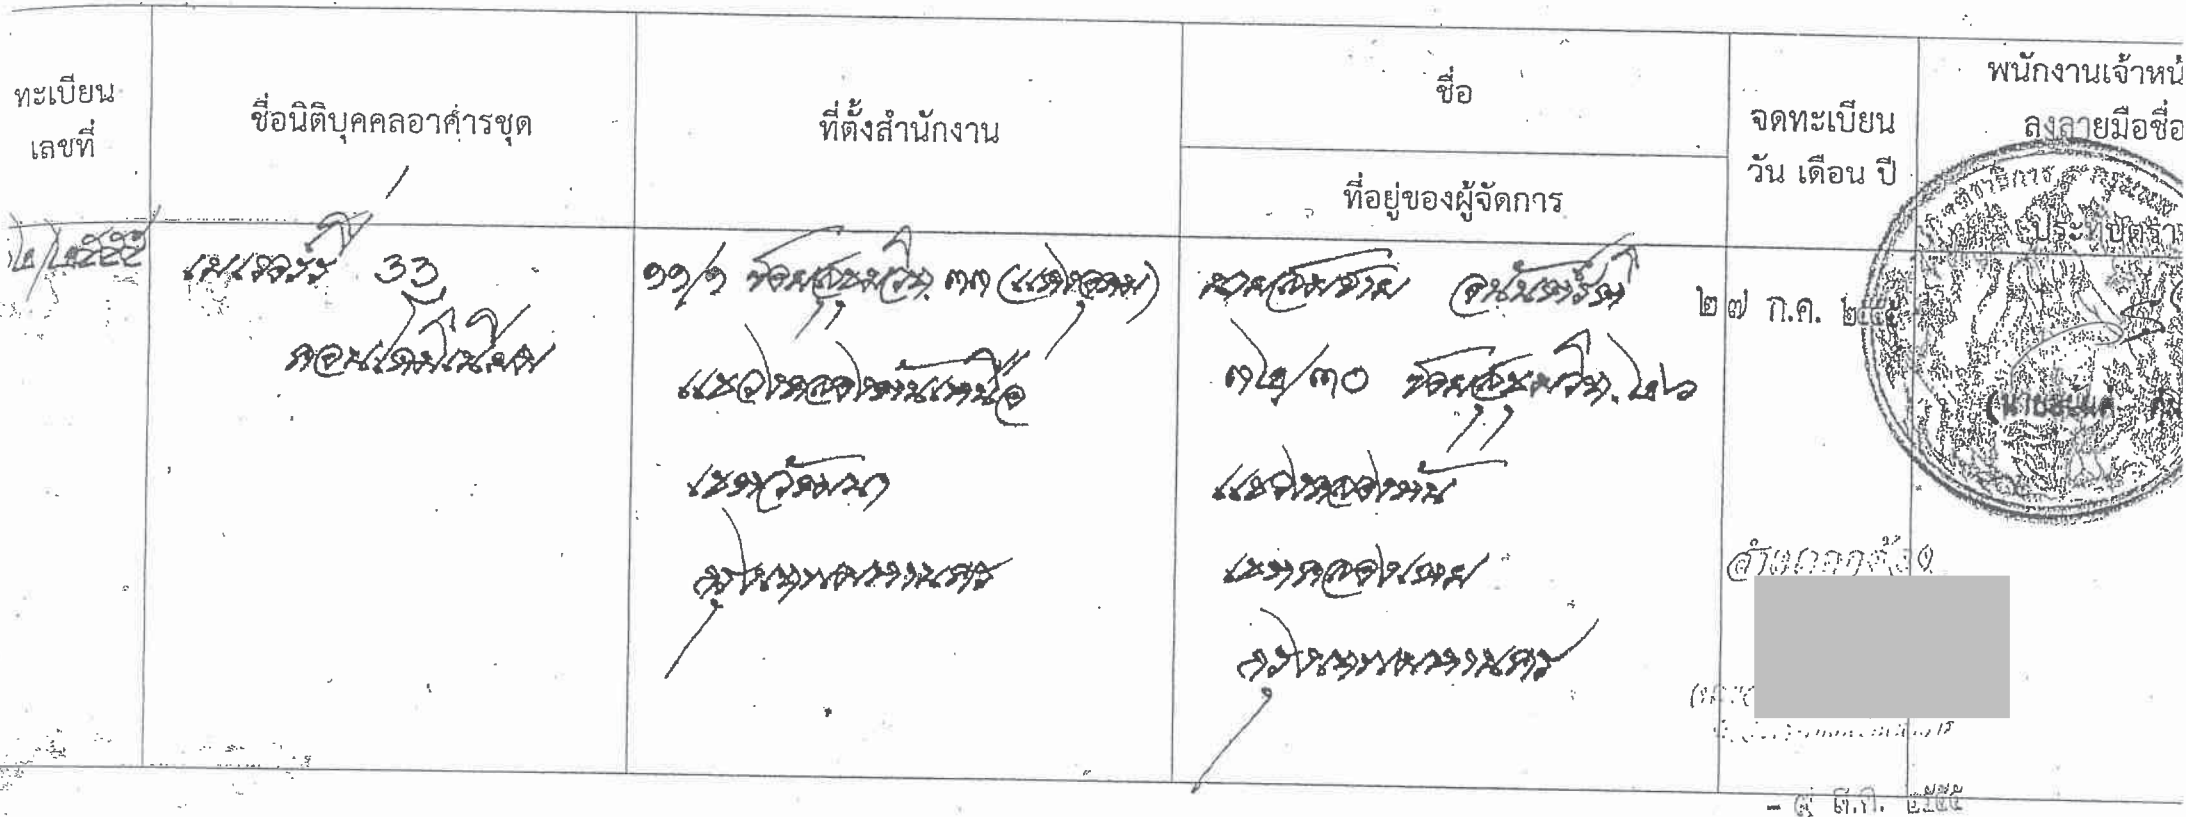 ทะเบียน
เลขที่
ชื่อนิติบุคคลอาคารชุด
ที่ตั้งสำนักงาน
ชื่อ
ที่อยู่ของผู้จัดการ
จดทะเบียน
วัน เดือน ปี
พนักงานเจ้าหน้
ลงลายมือชื่อ
๒/๒๕๕๕
เมเจอร์ 33
คอนโดมิเนียม
๑๑/๑ ซอยสุขุมวิท ๓๓ (แดงอุดม)
แขวงคลองตันเหนือ
เขตวัฒนา
กรุงเทพมหานคร
นายสมชาย
๓๒/๓๐ ซอยสุขุมวิท ๒๖
แขวงคลองตัน
เขตคลองเตย
กรุงเทพมหานคร
๒๗ ก.ค. ๒๕๕๕
ประทับตรา
สำเนาถูกต้อง
- ๙ ต.ค. ๒๕๕๕